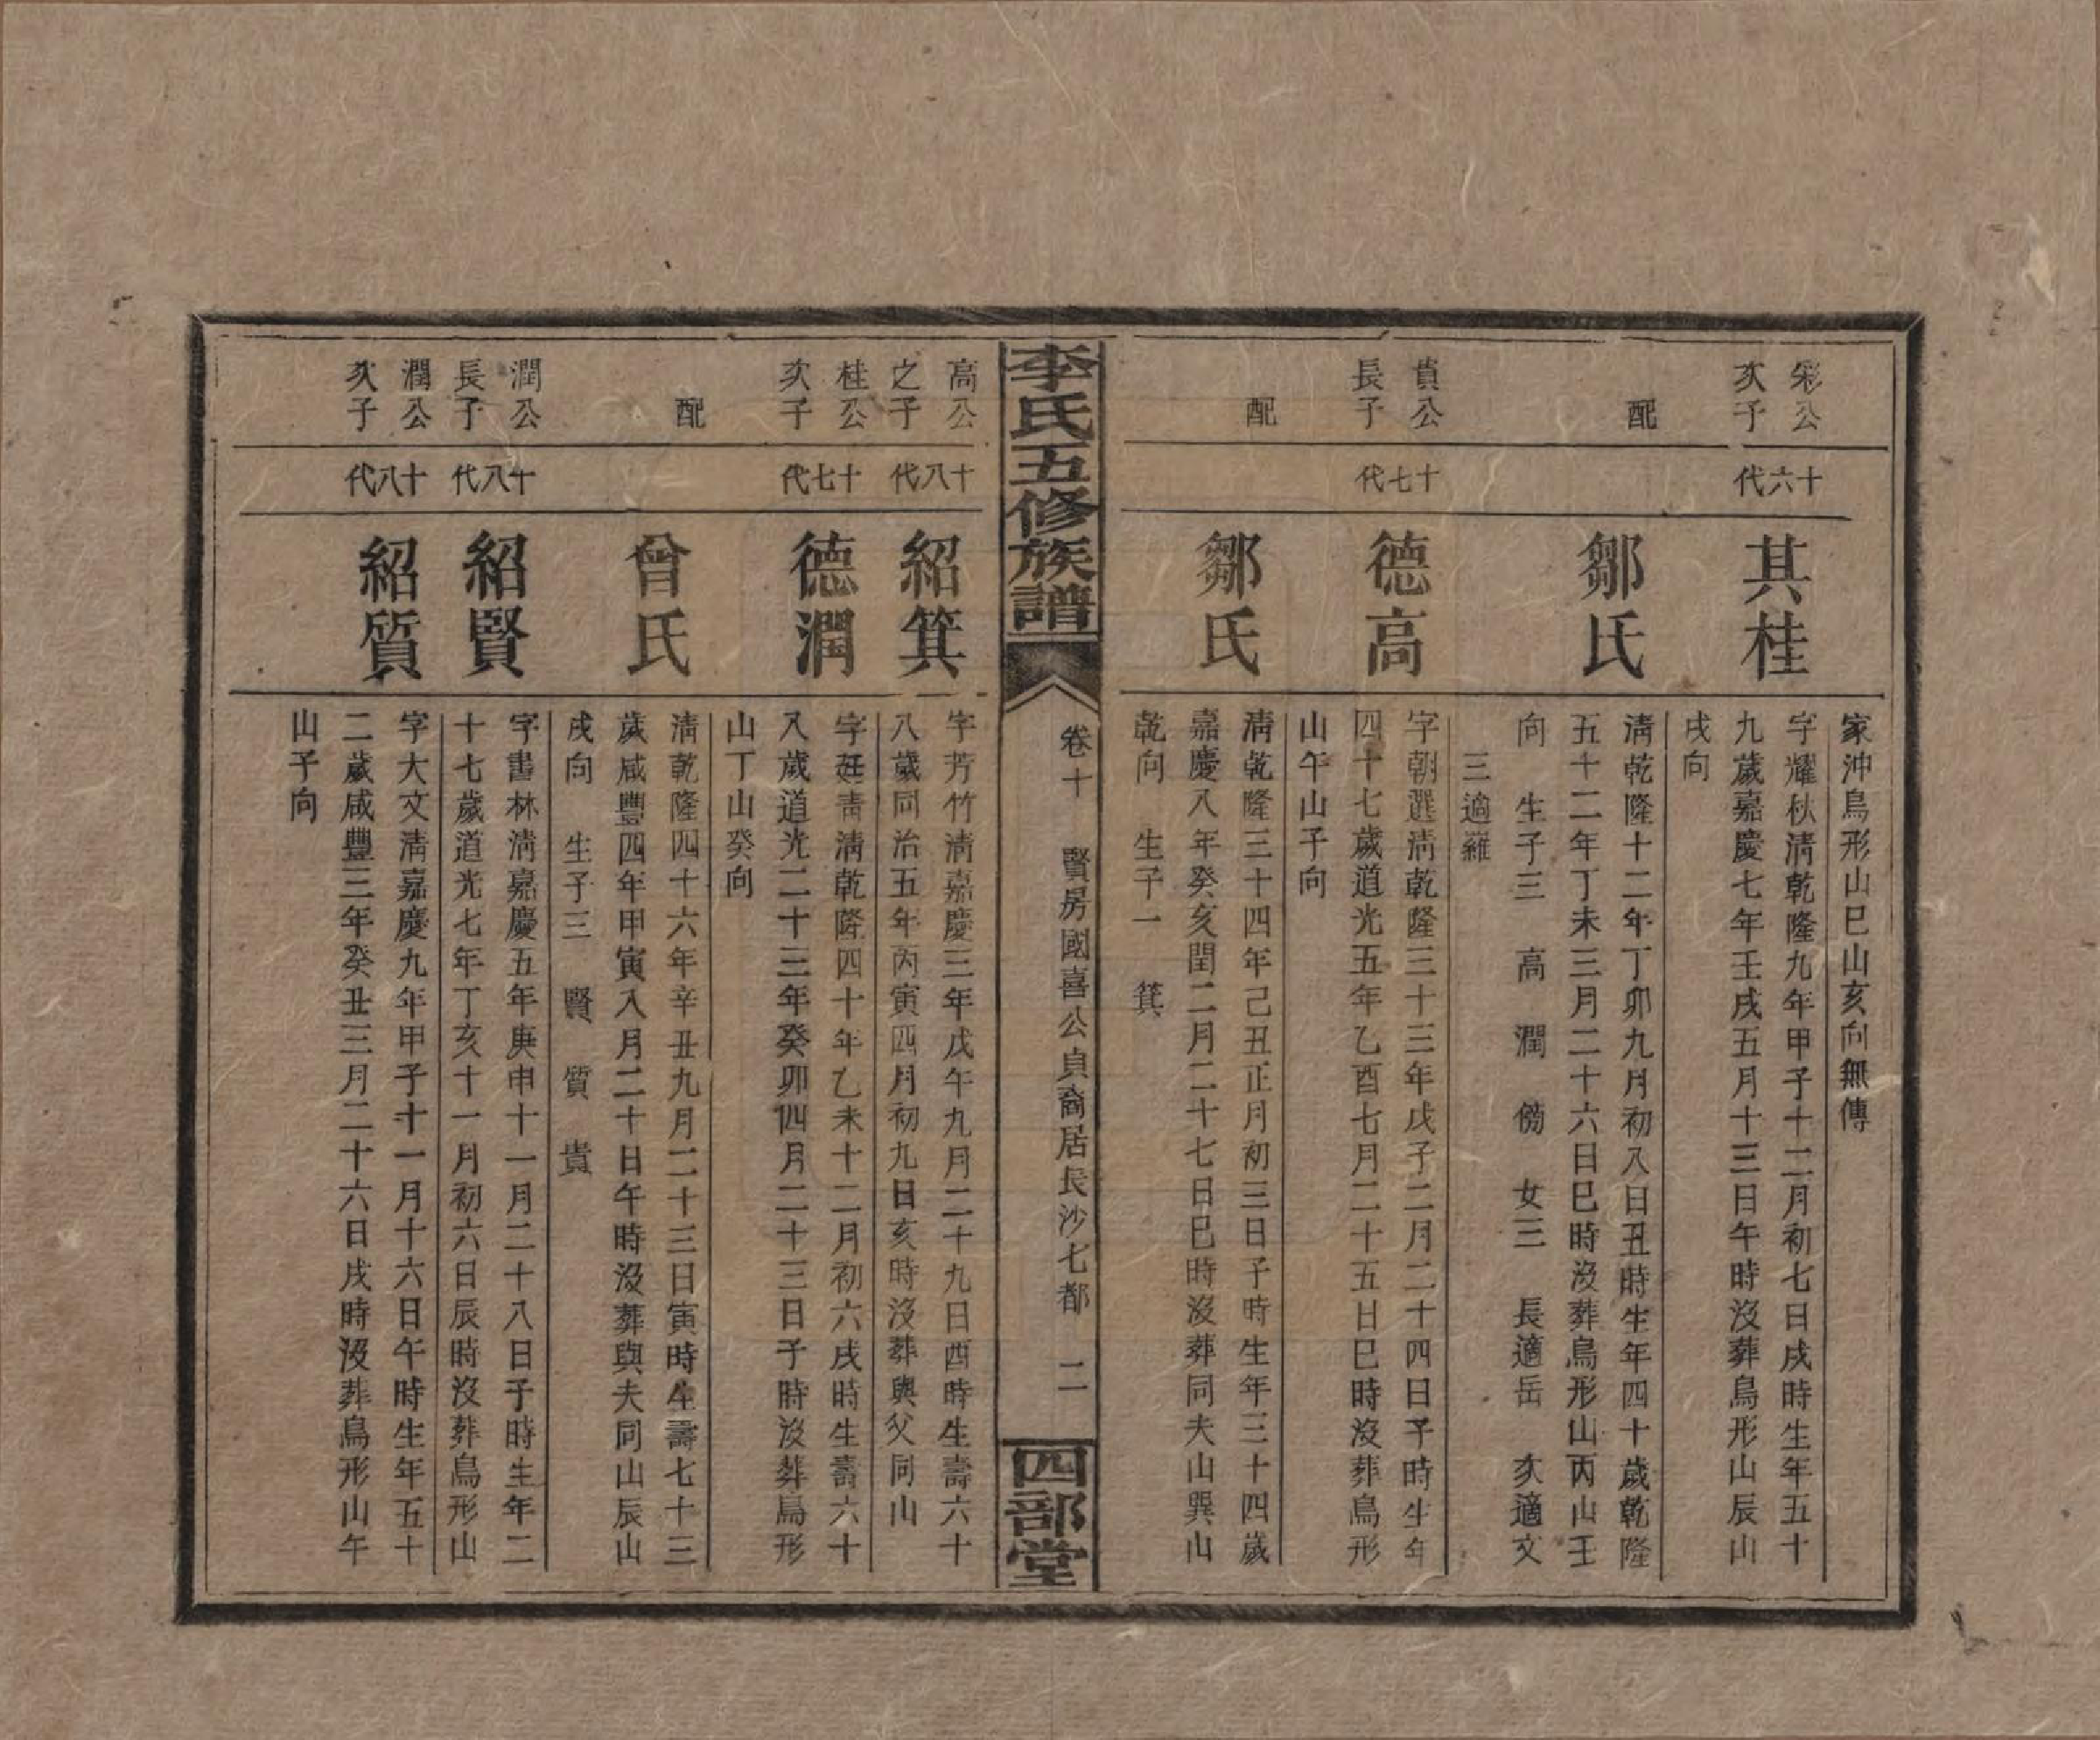 家沖鳥形山巳山亥向無傳
彩公
次子
十六代
其桂
字耀秋淸乾隆九年甲子十二月初七日戌時生年五十
九歲嘉慶七年壬戌五月十三日午時沒葬鳥形山辰山
戌向
配
鄒氏
淸乾隆十二年丁卯九月初八日丑時生年四十歲乾隆
五十二年丁未三月二十六日巳時沒葬鳥形山丙山壬
向　生子三　高　潤　傍　女三　長適岳　次適文
三適羅
貴公
長子
十七代
德高
字朝選淸乾隆三十三年戊子二月二十四日子時生年
四十七歲道光五年乙酉七月二十五日巳時沒葬鳥形
山午山子向
配
鄒氏
淸乾隆三十四年己丑正月初三日子時生年三十四歲
嘉慶八年癸亥閏二月二十七日巳時沒葬同夫山巽山
乾向　生子一　箕
李氏五修族譜
卷十　賢房國喜公貞裔居長沙七都　二
四部堂
高公
之子
十八代
紹箕
字芳竹淸嘉慶三年戊午九月二十九日酉時生壽六十
八歲同治五年丙寅四月初九日亥時沒葬與父同山
桂公
次子
十七代
德潤
字廷靑淸乾隆四十年乙未十二月初六戌時生壽六十
八歲道光二十三年癸卯四月二十三日子時沒葬鳥形
山丁山癸向
配
曾氏
淸乾隆四十六年辛丑九月二十三日寅時生壽七十三
歲咸豐四年甲寅八月二十日午時沒葬與夫同山辰山
戌向　生子三　賢　質　貴
潤公
長子
十八代
紹賢
字書林淸嘉慶五年庚申十一月二十八日子時生年二
十七歲道光七年丁亥十一月初六日辰時沒葬鳥形山
潤公
次子
十八代
紹質
字大文淸嘉慶九年甲子十一月十六日午時生年五十
二歲咸豐三年癸丑三月二十六日戌時沒葬鳥形山午
山子向